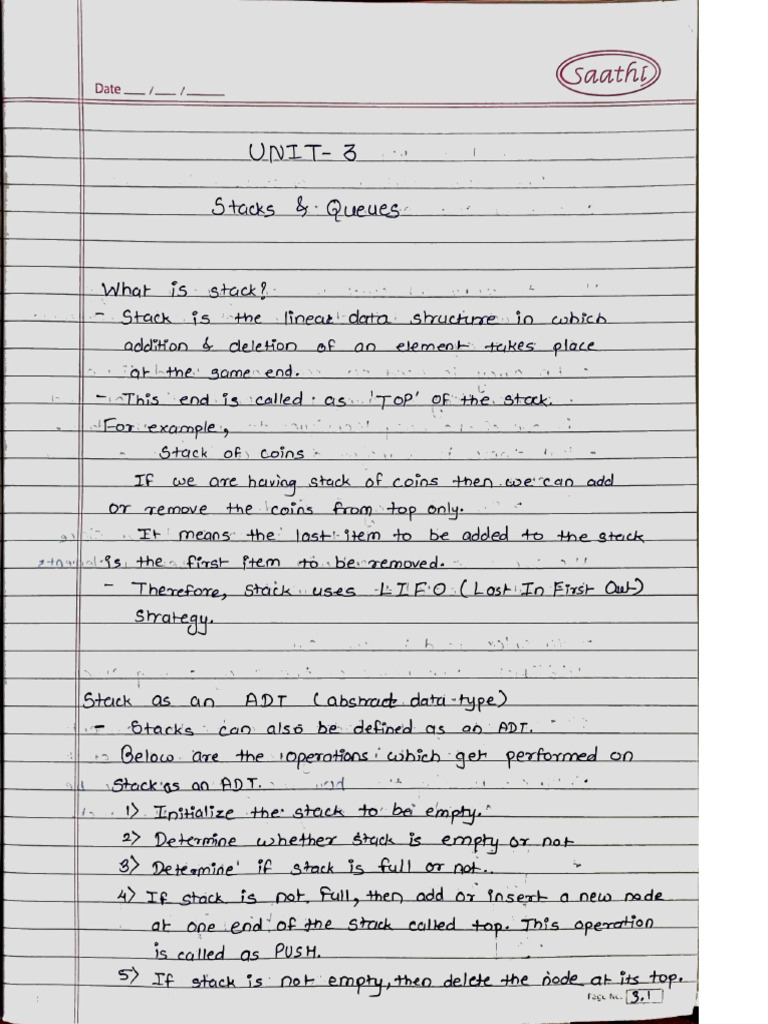 Saathi
Date __ / __ / ____
UNIT-3
Stacks & Queues
What is stack?
- Stack is the linear data structure in which
addition & deletion of an element takes place
at the same end.
- This end is called as 'TOP' of the stack.
For example,
Stack of coins
If we are having stack of coins then we can add
or remove the coins from top only.
It means the last item to be added to the stack
is the first item to be removed.
- Therefore, stack uses L I F O (Last In First Out)
Strategy.
Stack as an ADT (abstract data-type)
- Stacks can also be defined as an ADT.
- Below are the operations which get performed on
Stack as an ADT.
1) Initialize the stack to be empty.
2) Determine whether stack is empty or not
3) Determine if stack is full or not.
4) If stack is not full, then add or insert a new node
at one end of the stack called top. This operation
is called as PUSH.
5) If stack is not empty, then delete the node at its top.
Page No. 3.1